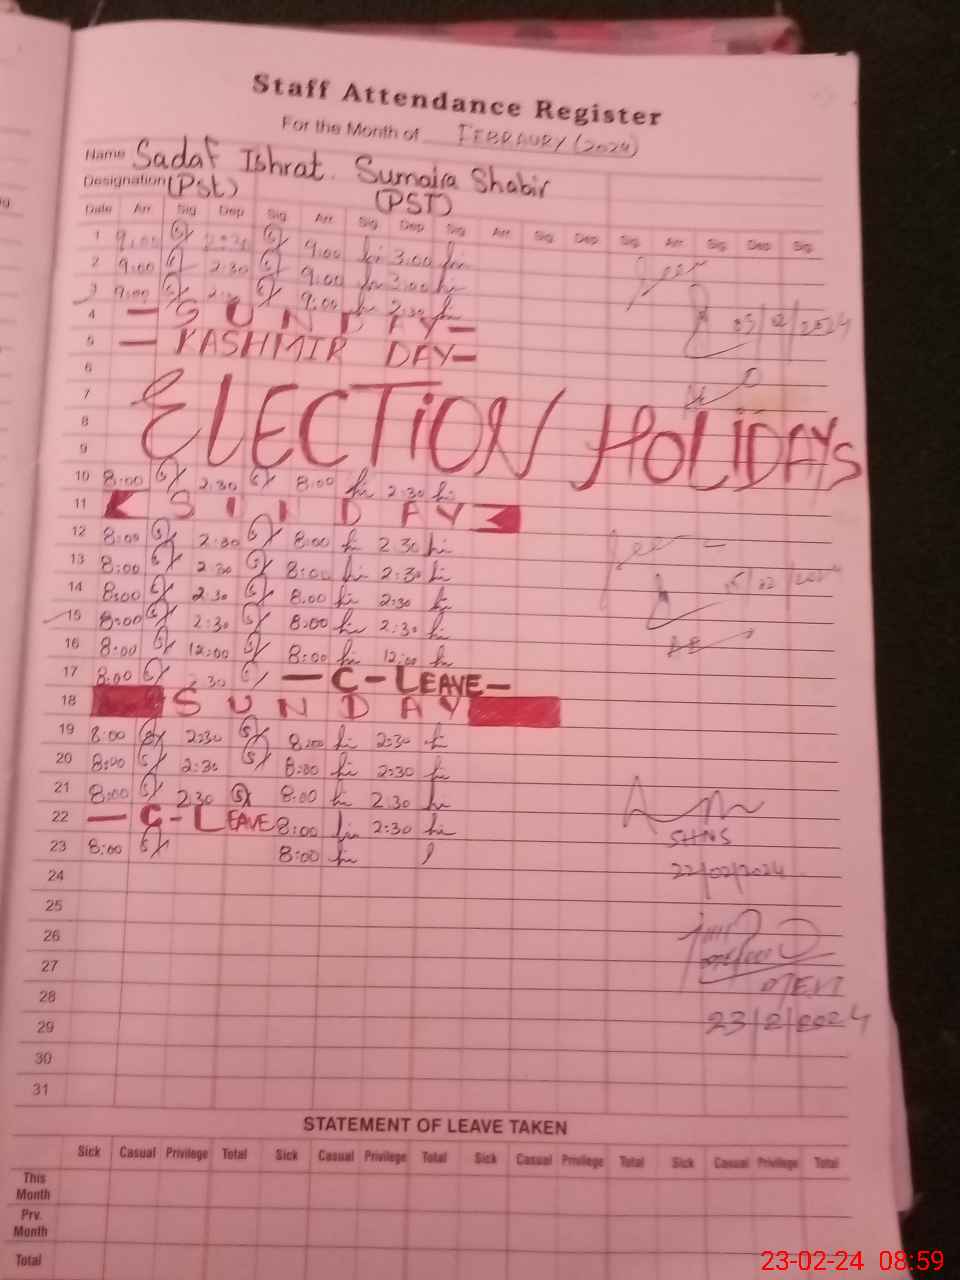 Staff Attendance Register
For the Month of FEBRAURY (2024)
Name Sadaf Ishrat. Sumaira Shabir
Designation (Pst) (PST)
Date Arr Sig Dep Sig Arr Sig Dep Sig Arr Sig Dep Sig Arr Sig Dep Sig
1 9.00 2:30 9.00 3.00
2 9.00 2.30 9.00 3:00
3 9:00 9:00 2:30
05/02/2024
4 — SUNDAY —
5 — KASHMIR DAY —
6
7
8 ELECTION HOLIDAYS
9
10 8:00 2.30 8:00 2:30
11 SUNDAY
12 8:00 2:30 8:00 2.30
13 8:00 2.30 8:00 2:30
14 8:00 2:30 8.00 2:30
15 8:00 2:30 8:00 2:30
16 8:00 12:00 8:00 12:00
17 8:00 2.30 — C-LEAVE —
18 SUNDAY
19 8:00 2:30 8:00 2:30
20 8:00 2:30 8:00 2:30
21 8:00 2.30 8:00 2.30
22 — C-LEAVE 8:00 2:30
23 8:00 8:00
24 22/02/2024
25
26
27
28
29 23/2/2024
30
31
STATEMENT OF LEAVE TAKEN
Sick Casual Privilege Total Sick Casual Privilege Total Sick Casual Privilege Total Sick Casual Privilege Total
This Month
Prv. Month
Total
23-02-24 08:59